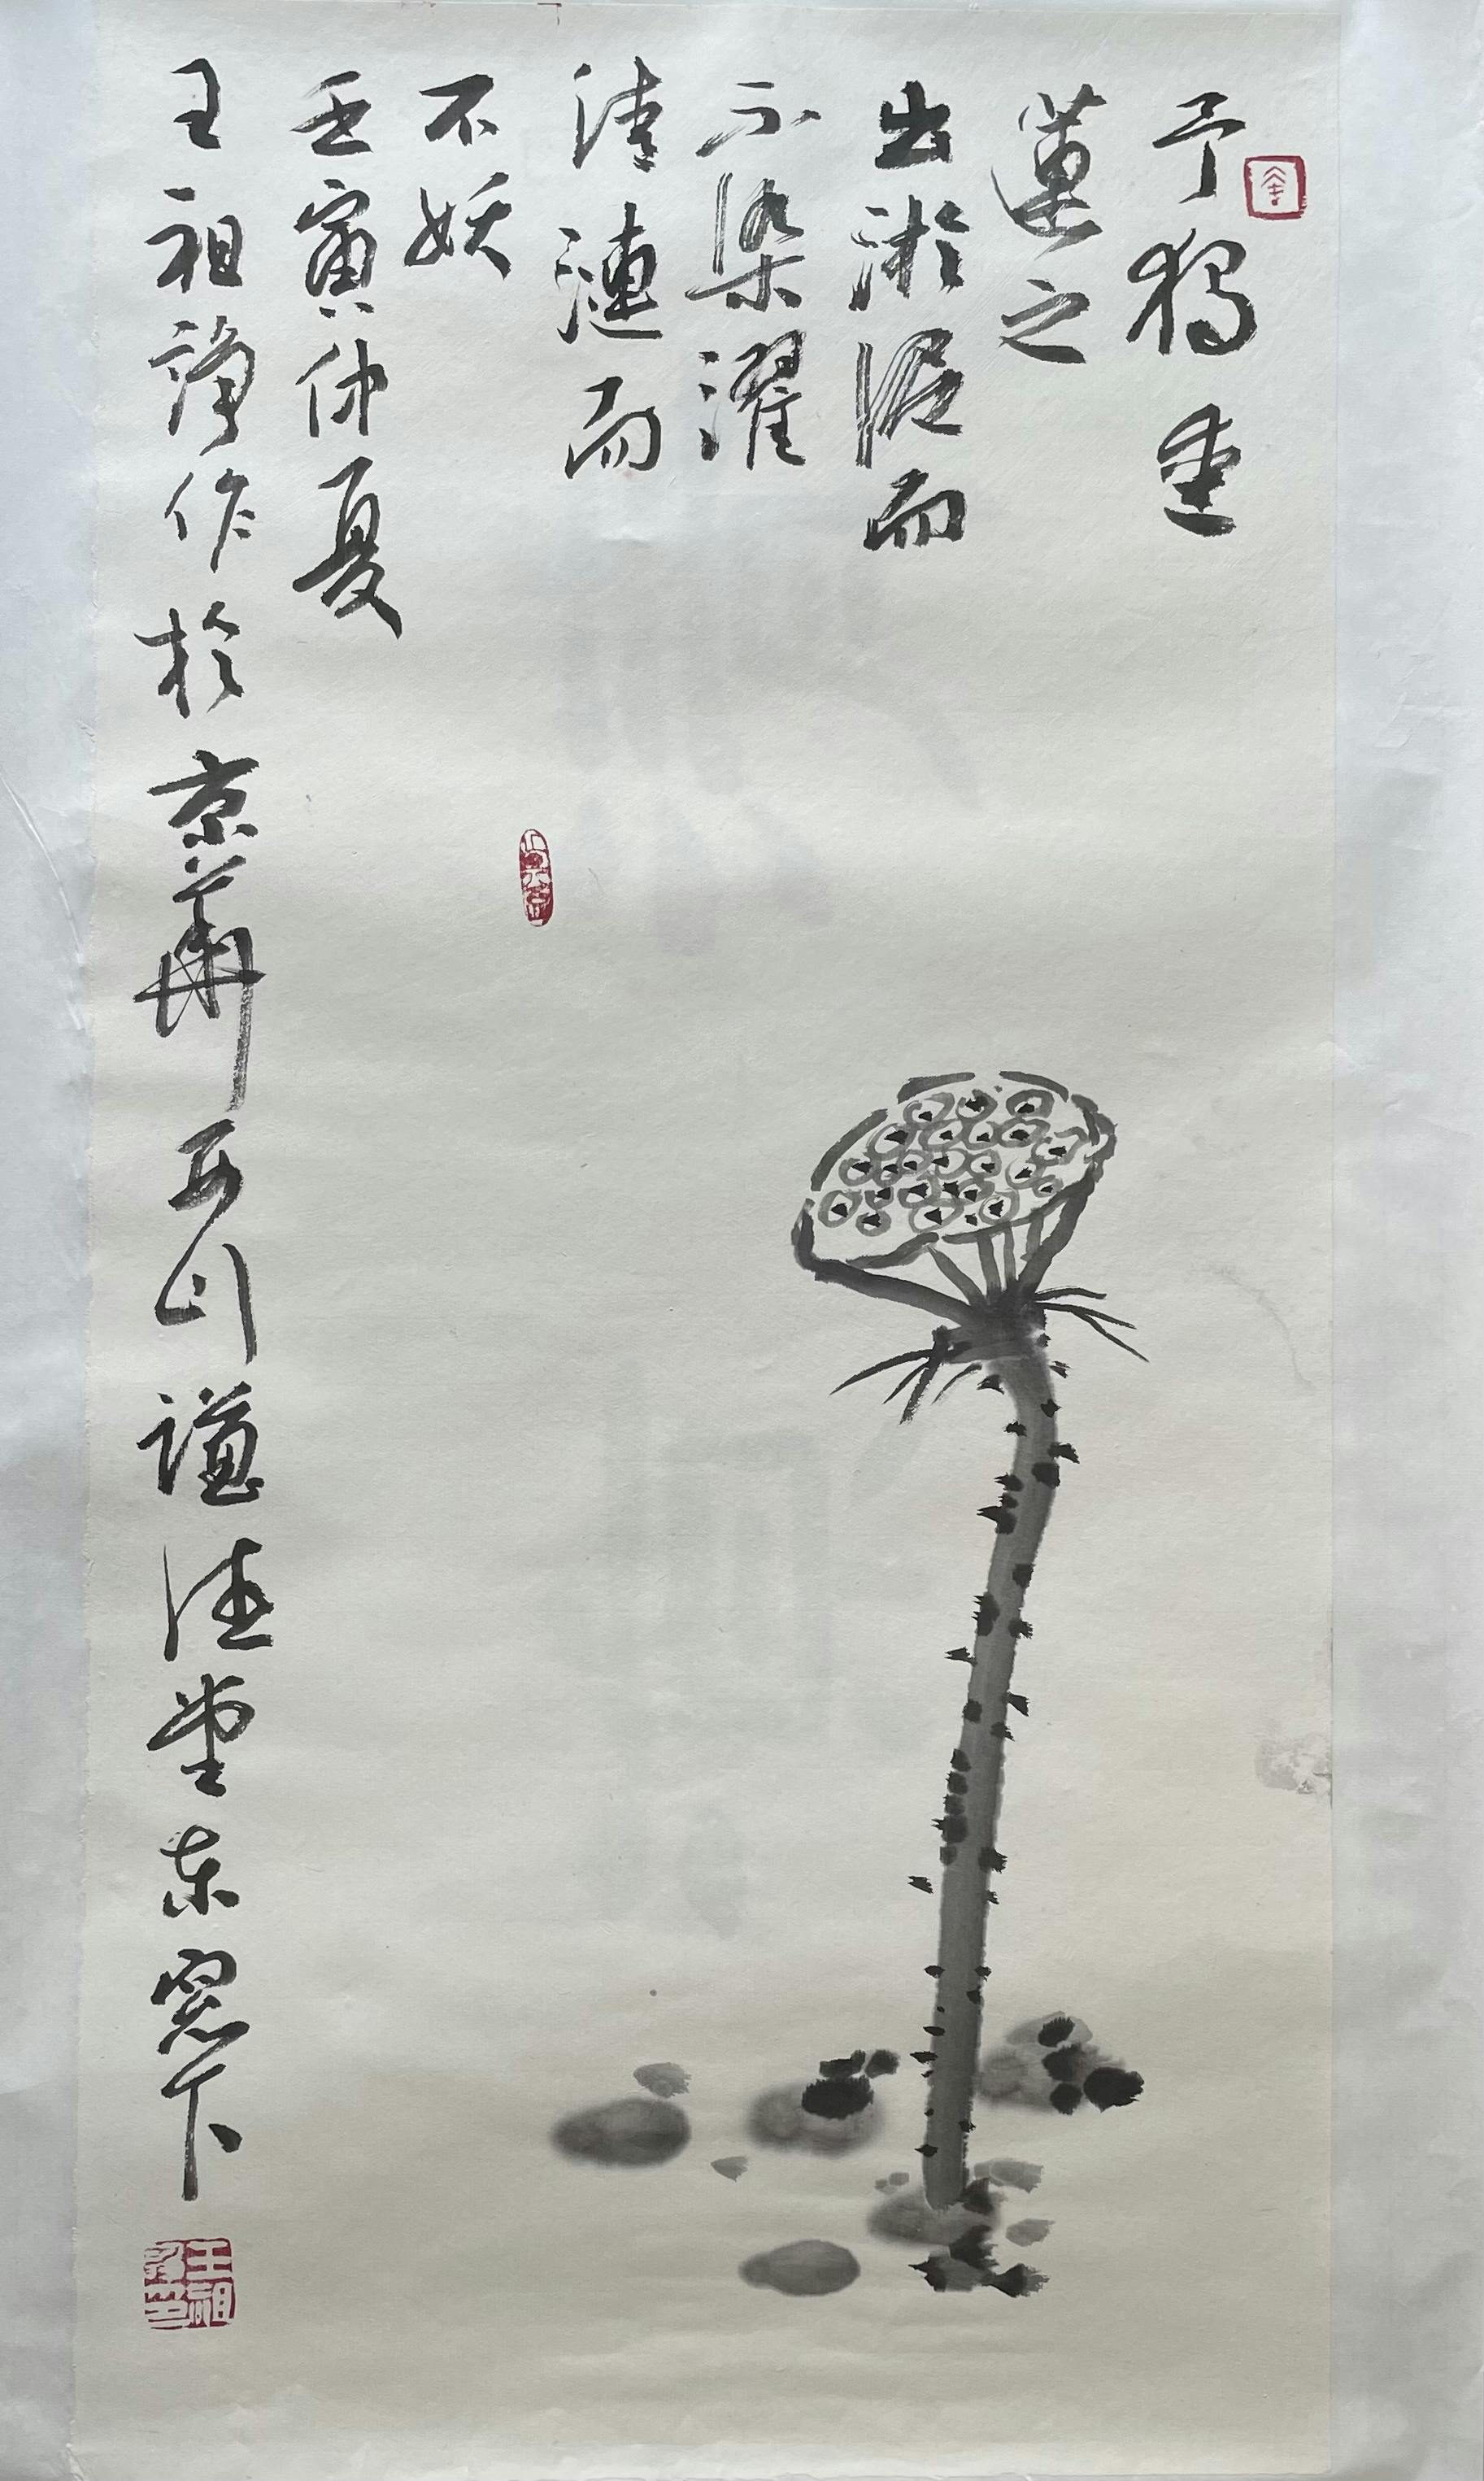 予獨愛
蓮之
出淤泥而
不染濯
清漣而
不妖
壬寅仲夏
王祖諍作於京華西川謙德堂東窗下
王祖